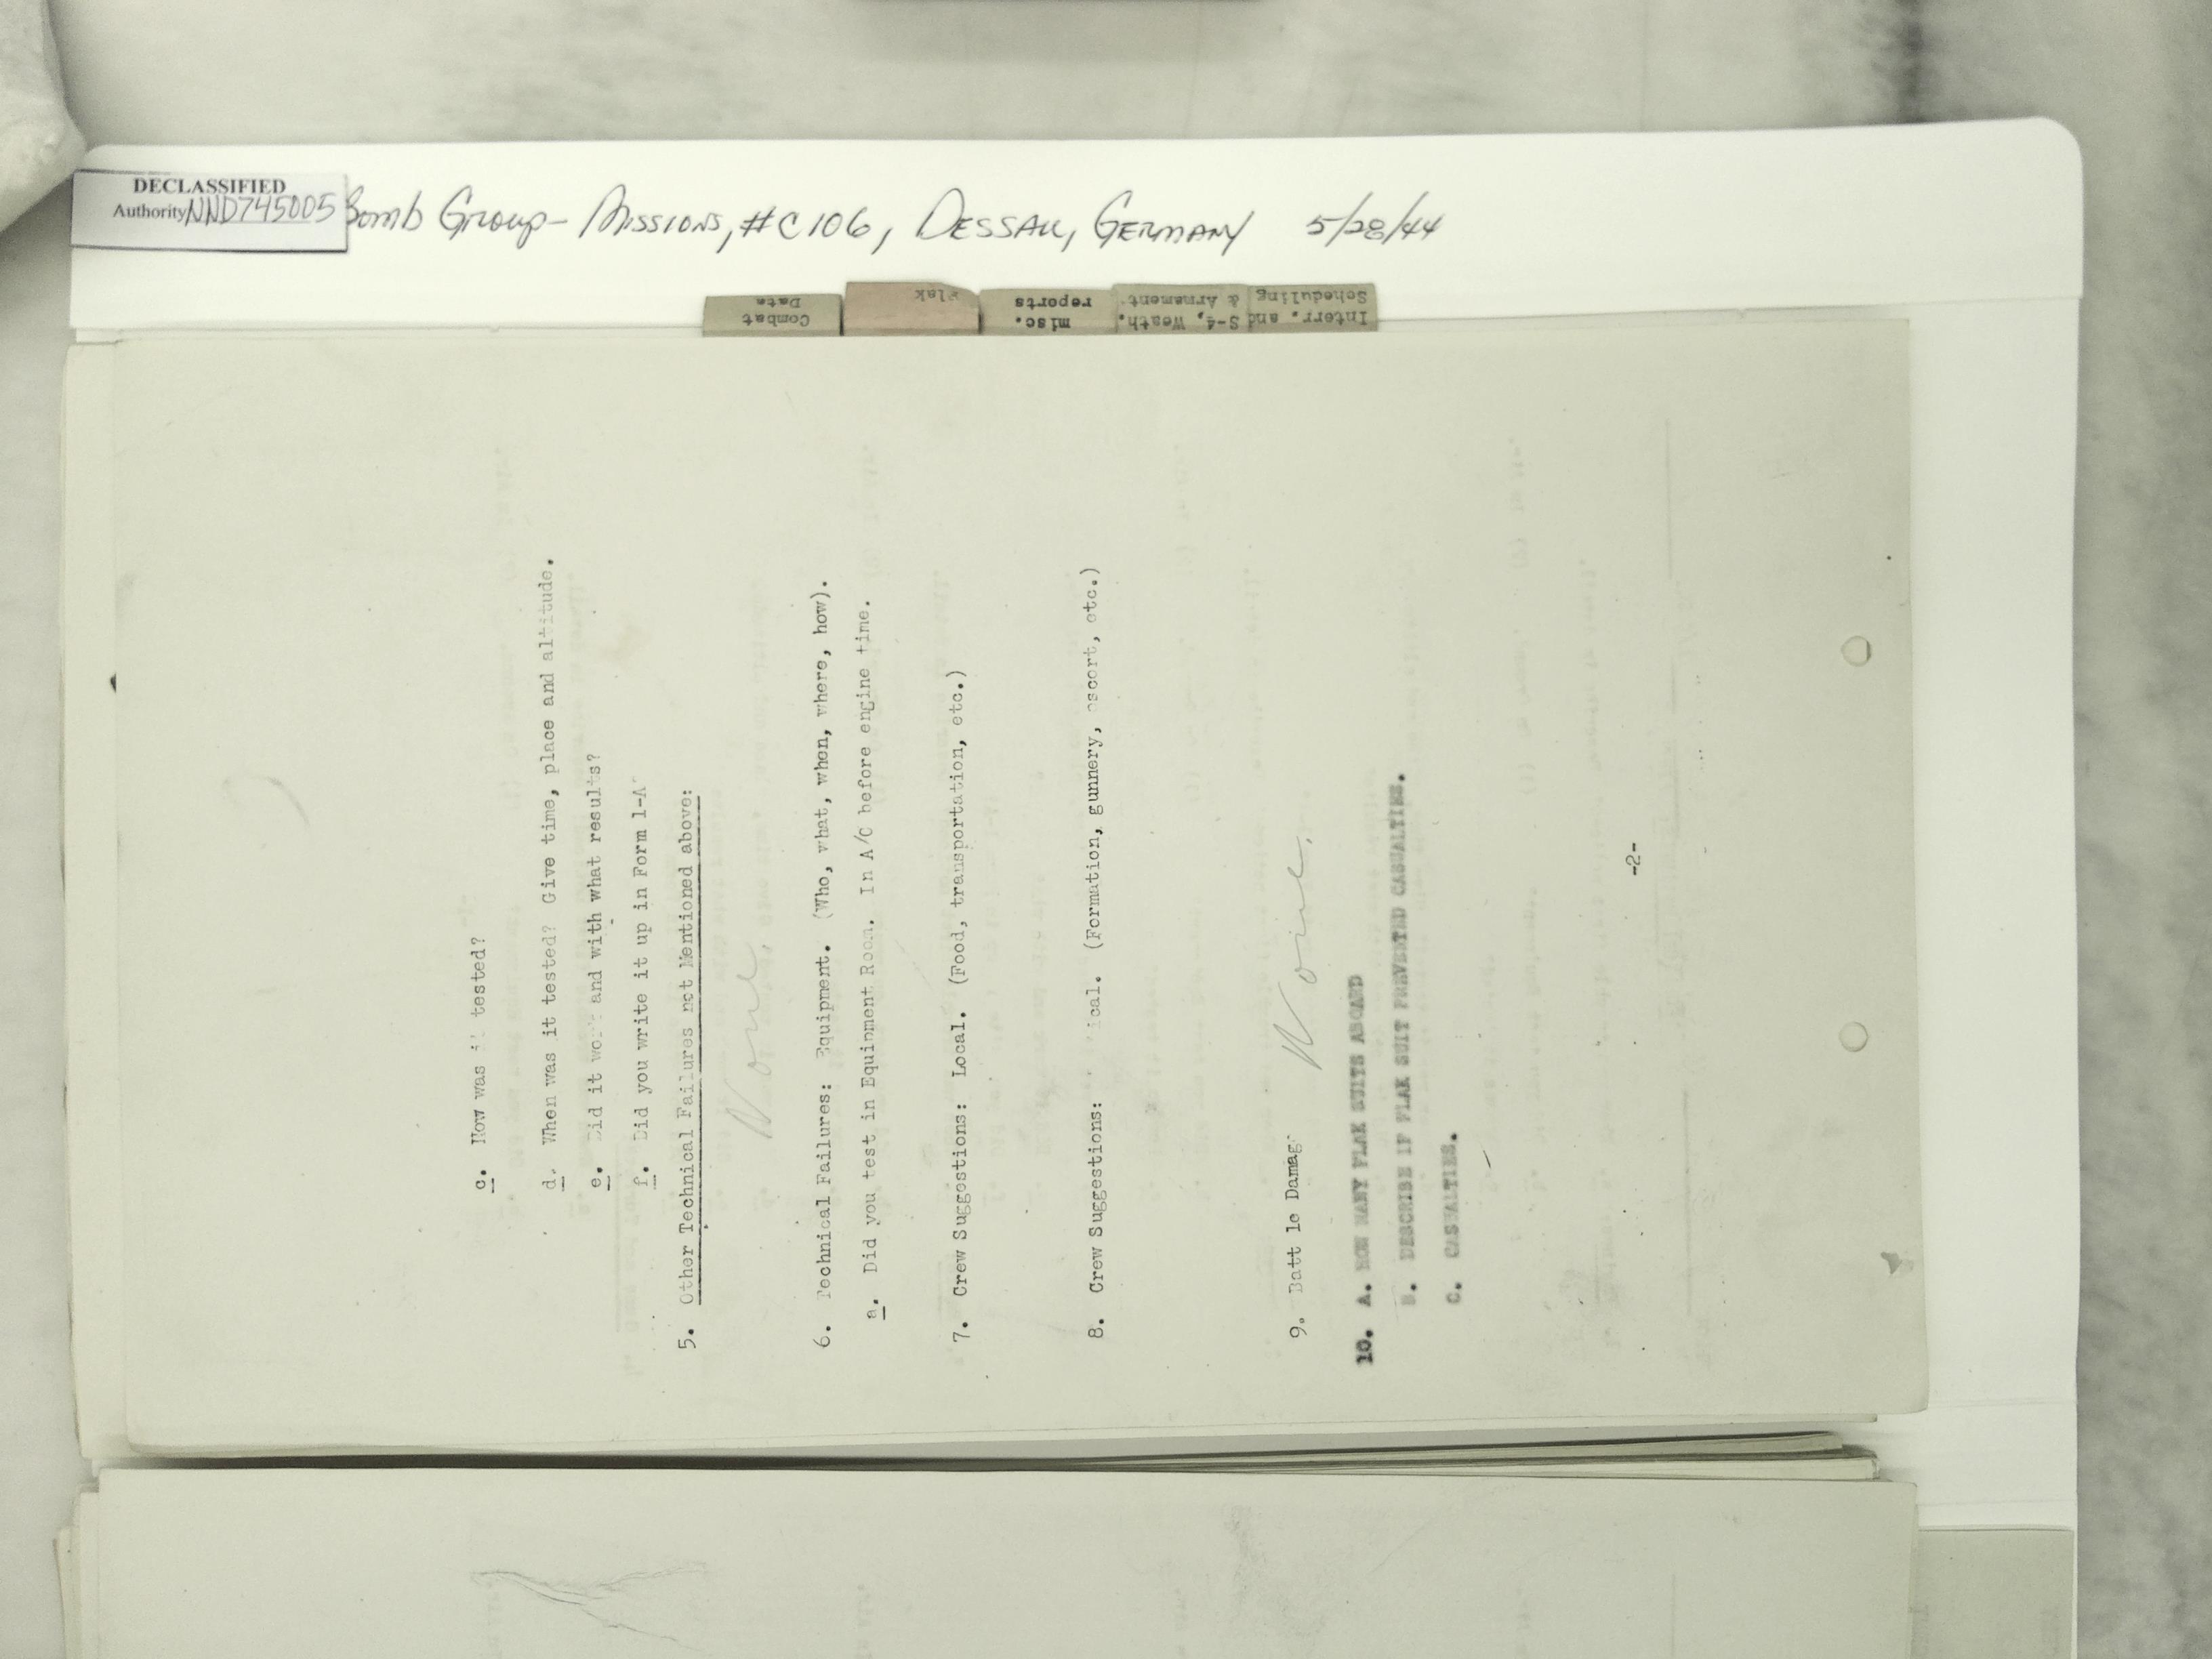 DECLASSIFIED
Authority NND745005
Bomb Group - Missions, #C106, Dessau, Germany 5/28/44
Combat
Data
Flak
misc.
reports
S-4, Weath.
& Armament
Interr. and
Scheduling
c. How was it tested?
d. When was it tested? Give time, place and altitude.
e. Did it work and with what results?
f. Did you write it up in Form 1-A
5. Other Technical Failures not Mentioned above:
None.
6. Technical Failures: Equipment. (Who, what, when, where, how).
a. Did you test in Equipment Room. In A/C before engine time.
7. Crew Suggestions: Local. (Food, transportation, etc.)
8. Crew Suggestions: (Formation, gunnery, escort, etc.)
9. Batt le Damag
None.
10. A. HOW MANY FLAK SUITS ABOARD
B. DESCRIBE IF FLAK SUIT PREVENTED CASUALTIES.
C. CASUALTIES.
-2-